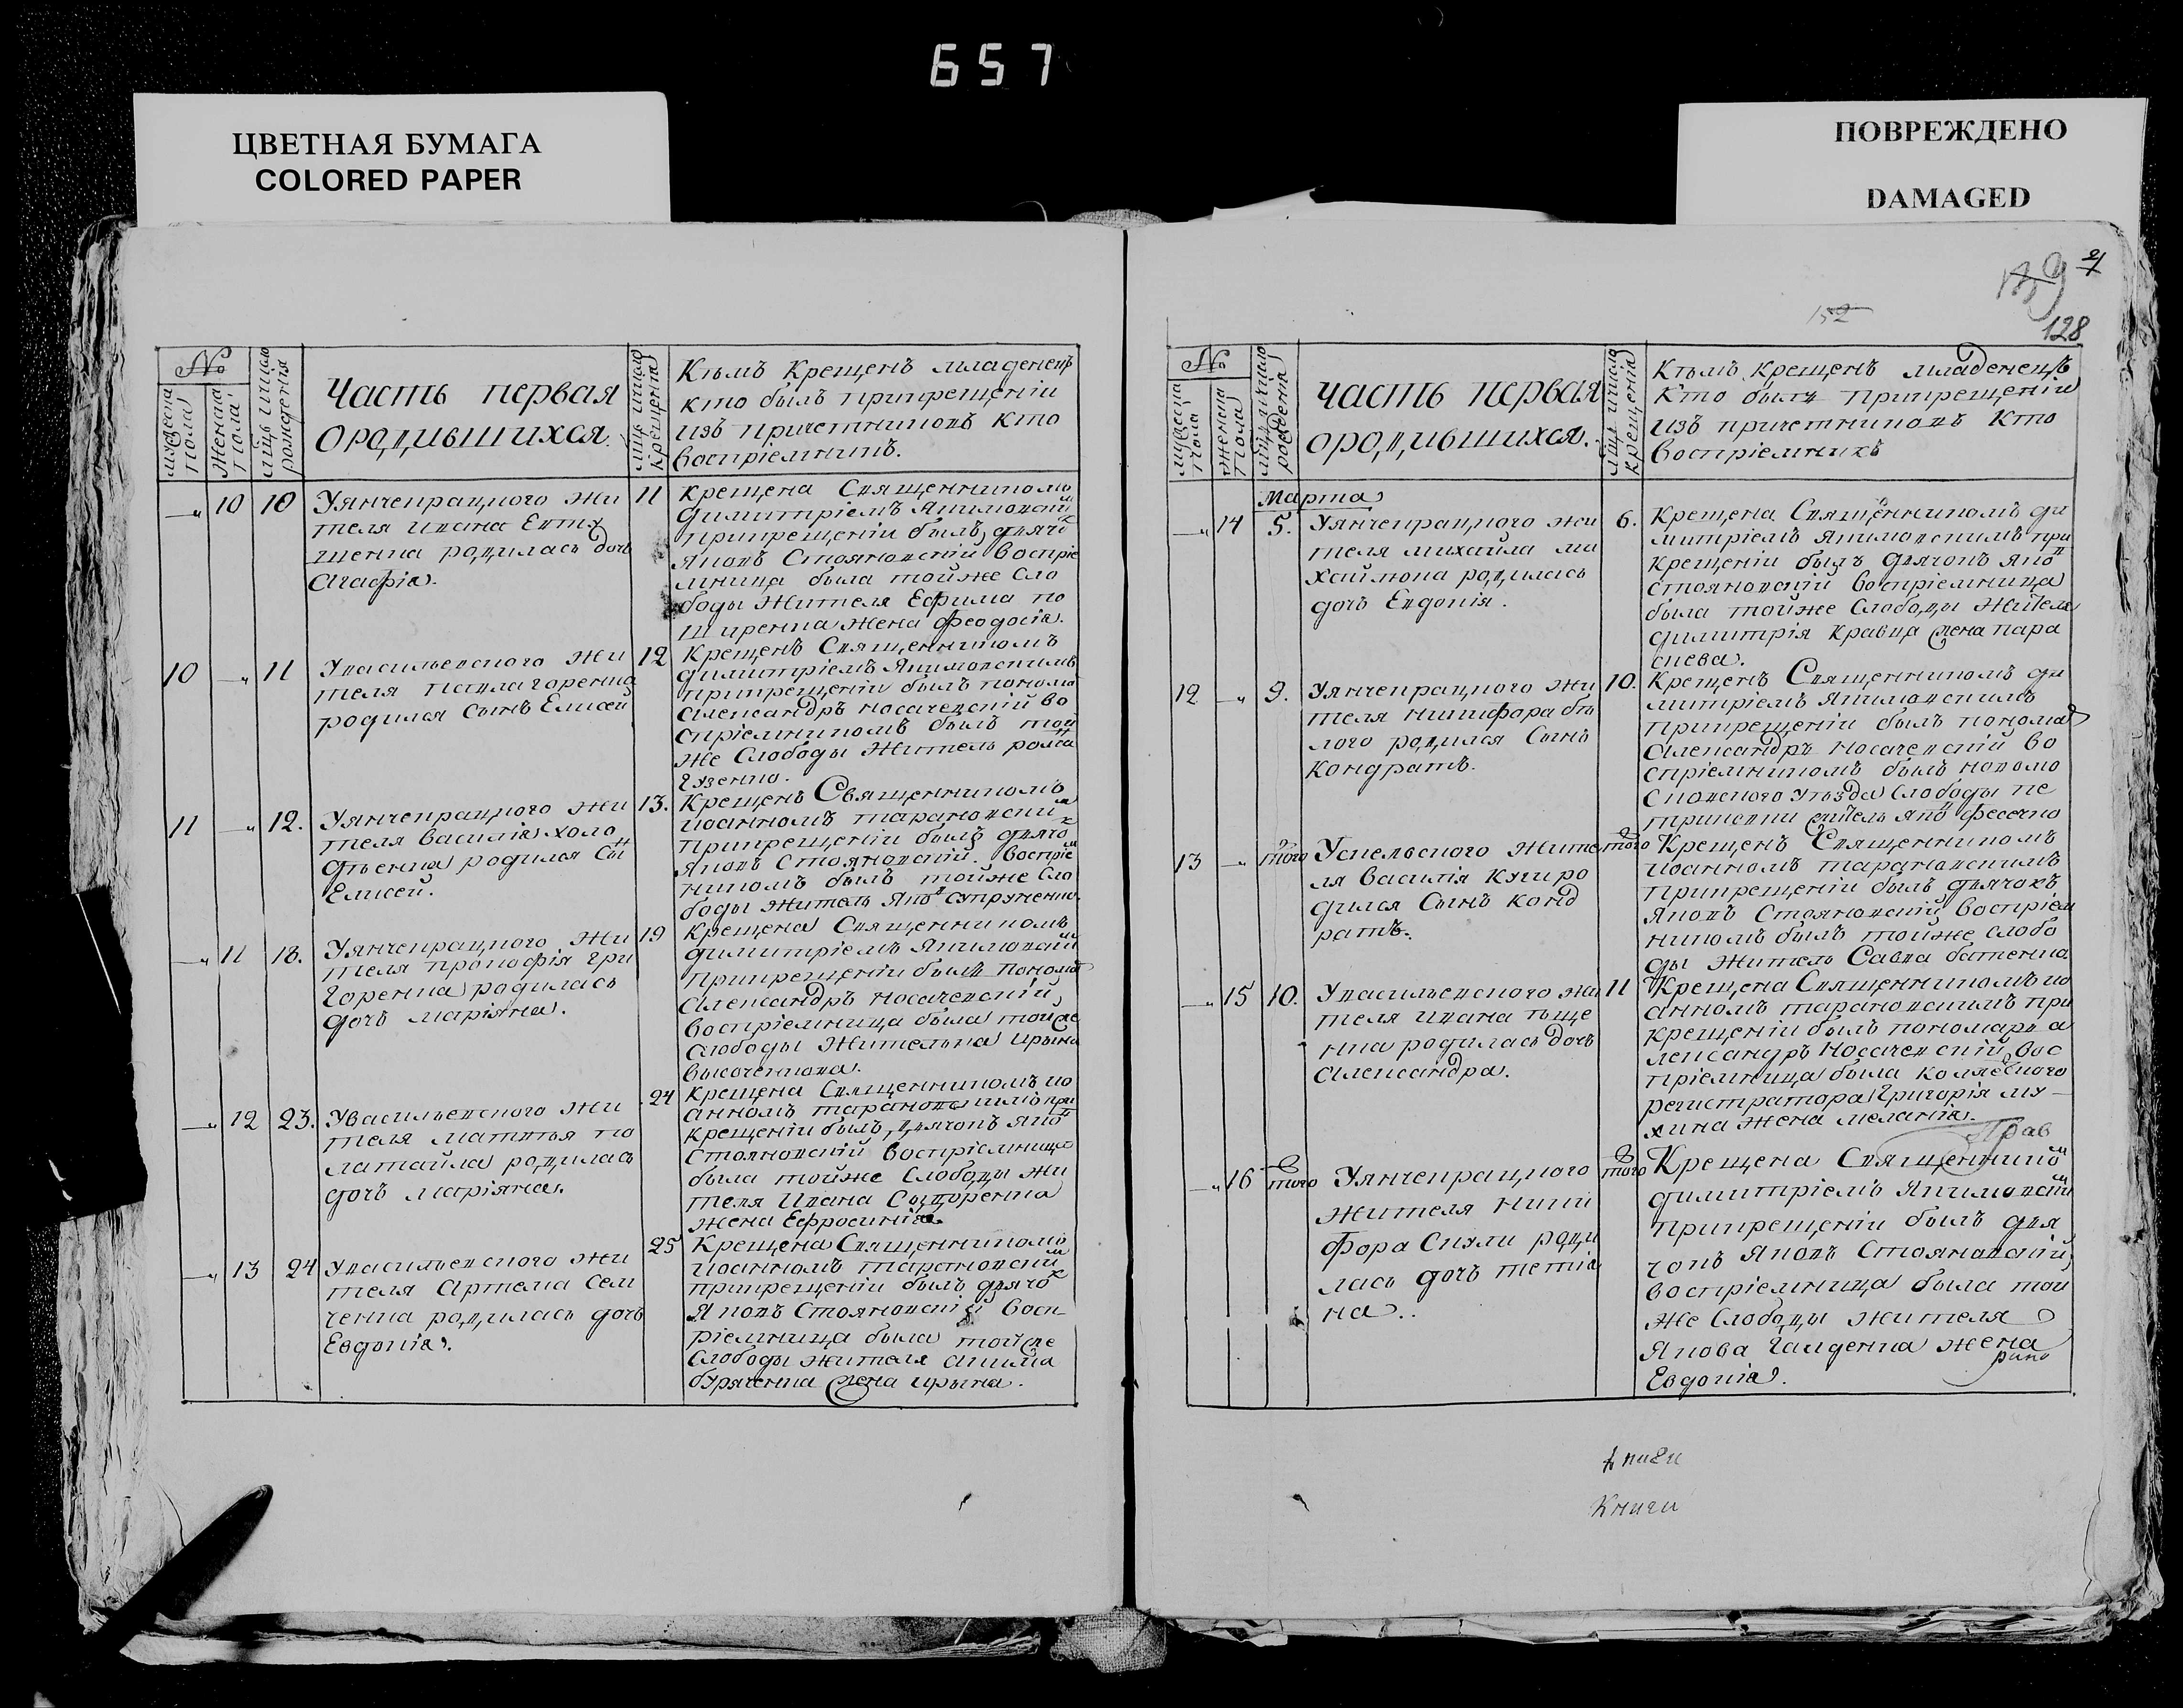 657
ЦВЕТНАЯ БУМАГА
COLORED PAPER
ПОВРЕЖДЕНО
DAMAGED
152
128
№
мужеска пола
женска пола
рождения
Часть первая
о родившихся.
крещения
Кѣмъ крещенъ младенецъ
кто былъ при крещеніи
изъ причетниковъ кто
воспріемникъ.
10 10
У янченрацкого жи
теля ивана Евту
шенка родилась дочь
Агафія.
11
крещена Священникомъ
димитріемъ Якимовским
при крещеніи былъ дьячек
Яковъ Стояновскій воспріе
мница была той же сло
боды жителя Ефима по
ширенка жена феодосія.
10 11
У васильевского жи
теля горенка
родился сынъ Елисей
12
Крещенъ Священникомъ
димитріемъ Якимовскимъ
при крещеніи былъ понома
Александръ Носачевскій во
спріемникомъ былъ той
же Слободы Житель роман
Гузенко.
11 12.
У янченрацкого жи
теля василія холо
дѣенка родился сын
Елисей.
13.
Крещенъ Священникомъ
иоанномъ тарановским
при крещеніи былъ дьячок
Яковъ Стояновскій. воспріем
никомъ былъ той же сло
боды житель Яков Супруненко.
11 18.
У янченрацкого жи
теля прокофія гри
горенка родилась
дочь маріяна.
19
Крещена Священникомъ
димитріемъ Якимовским
при крещеніи былъ понома
Александръ Носачевскій,
воспріемница была той же
слободы жителька ирына
высоченкова.
12 23.
У васильевского жи
теля матвѣя по
латайла родилась
дочь маріяна.
24
Крещена Священникомъ ио
анномъ тарановскимъ при
крещеніи былъ дьячокъ Яков
Стояновскій воспріемница
была той же Слободы жи
теля Ивана Сыдоренка
жена Ефросинія.
13 24
У васильевского жи
теля Артема сем
ченка родилась дочь
Евдокія.
25
Крещена Священникомъ
иоанномъ тарановским
при крещеніи былъ дьячок
Яковъ Стояновскій восп
ріемница была той же
слободы жителя акима
буряченка жена ирына.
№
женска пола
Часть первая
о родившихся.
крещенія
Кѣмъ крещенъ младенецъ
кто былъ при крещеніи
изъ причетниковъ кто
воспріемникъ
Марта
14 5.
У янченрацкого жи
теля михайла ма
хаймона родилась
дочь Евдокія.
6.
Крещена Священникомъ ди
митріемъ Якимовскимъ при
крещеніи былъ дьячокъ Яков
Стояновскій воспріемница
была той же слободы жителя
димитрія кравца жена пара
скева.
12 9.
У янченрацкого жи
теля никифора бѣ
лого родился сынъ
Кондратъ.
10.
Крещенъ Священникомъ ди
митріемъ Якимовскимъ
при крещеніи былъ понома
Александръ Носачевскій во
спріемникомъ былъ новомо
сковского уѣзда слободы пе
триковки житель Яков фесечко
13 того
У скельского жите
ля василія кучи ро
дился сынъ конд
ратъ.
того
Крещенъ Священникомъ
иоанномъ тарановскимъ
при крещеніи былъ дьячокъ
Яковъ Стояновскій воспріем
никомъ былъ той же слобо
ды житель Савка батенко.
15 10.
У васильевского жи
теля ивана тыще
нка родилась дочь
Александра.
11
Крещена Священникомъ ио
анномъ тарановскимъ при
крещеніи былъ пономарь а
лександръ Носачевскій, вос
пріемница была коллежского
регистратора Григорія му
хина жена меланія.
16 того
У янченрацкого
жителя ники
фора роди
лась дочь тетія
на.
того
Крещена Священником
димитріемъ Якимовским
при крещеніи былъ дья
чокъ Яковъ Стояновскій,
воспріемница была той
же слободы жителя
Якова Гайденка жена
Евдокія.
Книги